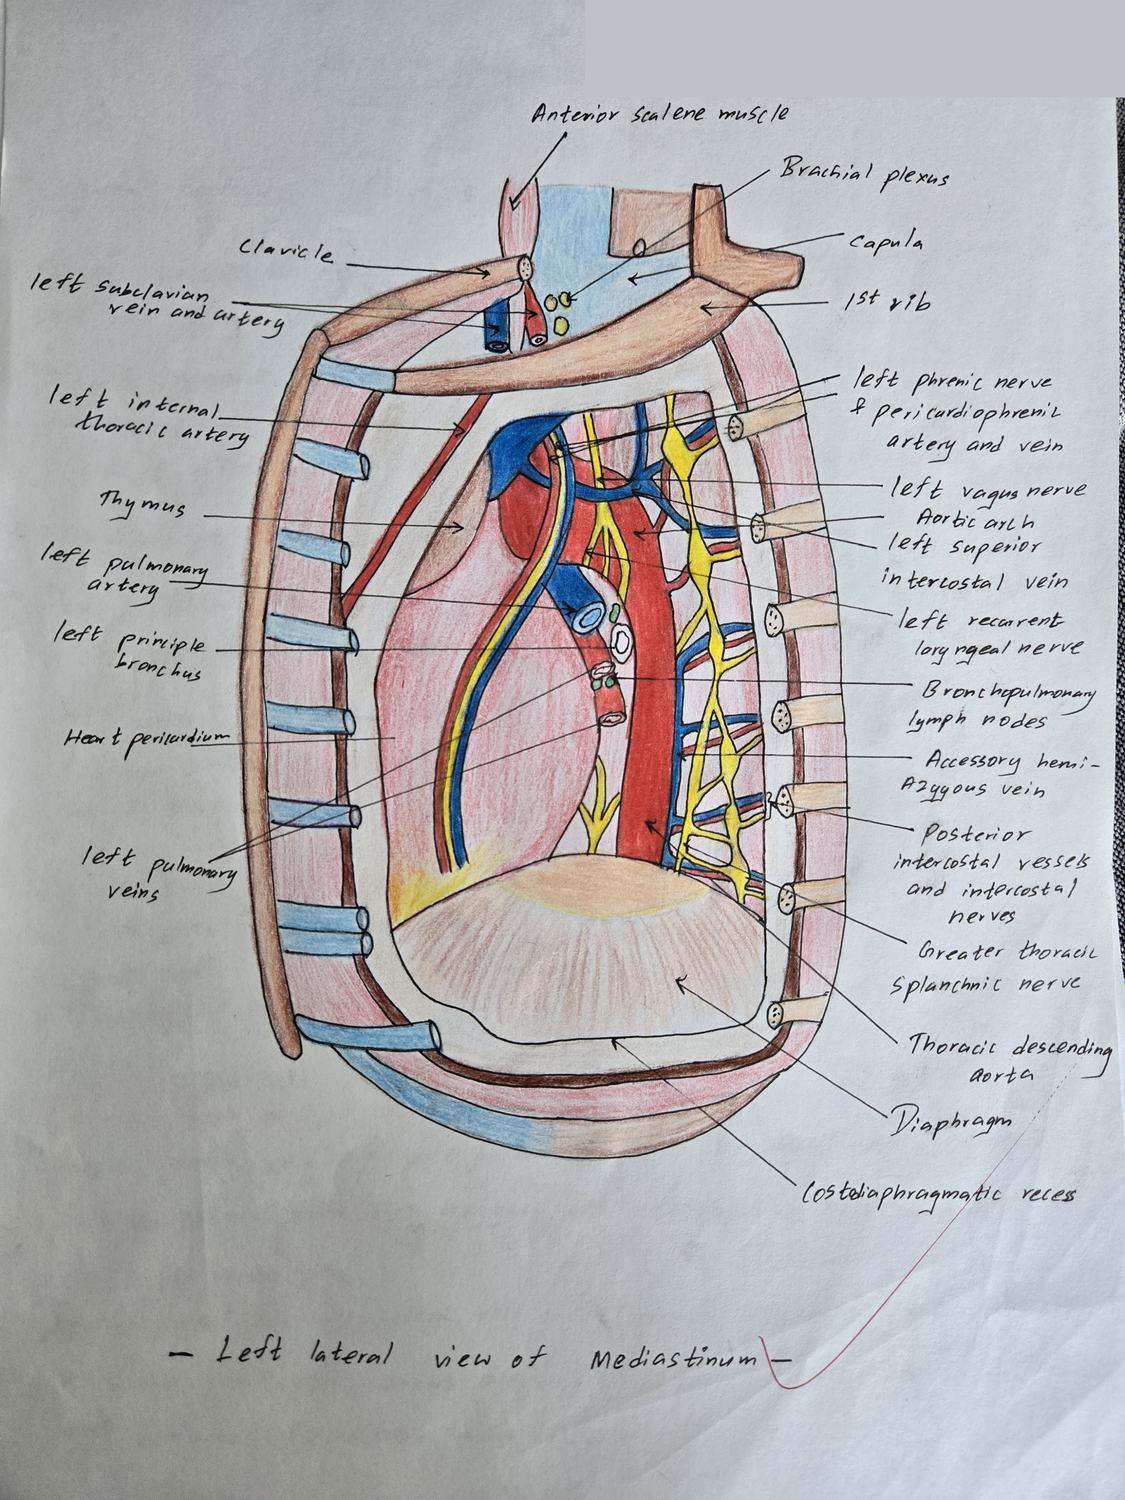 Anterior scalene muscle
Brachial plexus
Clavicle
Capula
left subclavian
vein and artery
1st rib
left internal
thoracic artery
left phrenic nerve
& pericardiophrenic
artery and vein
Thymus
left vagus nerve
Aortic arch
left superior
intercostal vein
left pulmonary
artery
left recurrent
laryngeal nerve
left principle
bronchus
Bronchopulmonary
lymph nodes
Heart pericardium
Accessory hemi-
Azygous vein
left pulmonary
veins
Posterior
intercostal vessels
and intercostal
nerves
Greater thoracic
splanchnic nerve
Thoracic descending
aorta
Diaphragm
Costodiaphragmatic recess
- Left lateral view of Mediastinum -